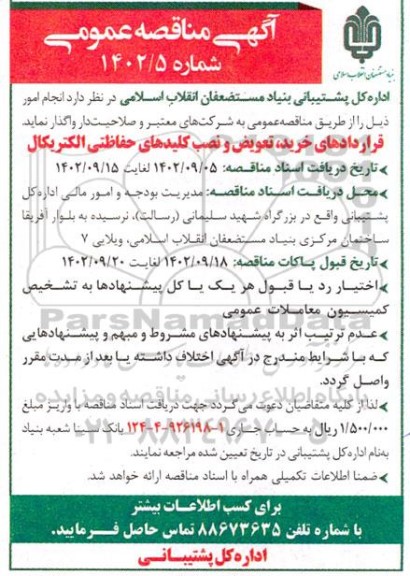 آگهی مناقصه عمومی
شماره ۱۴۰۲/۵
بنیاد مستضعفان انقلاب اسلامی
اداره کل پشتیبانی بنیاد مستضعفان انقلاب اسلامی در نظر دارد انجام امور
ذیل را از طریق مناقصه عمومی به شرکت‌های معتبر و صلاحیت‌دار واگذار نماید.
قراردادهای خرید، تعویض و نصب کلیدهای حفاظتی الکتریکال
✓تاریخ دریافت اسناد مناقصه: ۱۴۰۲/۰۹/۰۵ لغایت ۱۴۰۲/۰۹/۱۵
✓محل دریافت اسناد مناقصه: مدیریت بودجه و امور مالی اداره کل
پشتیبانی واقع در بزرگراه شهید سلیمانی (رسالت)، نرسیده به بلوار آفریقا
ساختمان مرکزی بنیاد مستضعفان انقلاب اسلامی، ویلایی ۷
✓تاریخ قبول پاکات مناقصه: ۱۴۰۲/۰۹/۱۸ لغایت ۱۴۰۲/۰۹/۲۰
✓اختیار رد یا قبول هر یک یا کل پیشنهادها به تشخیص
کمیسیون معاملات عمومی
✓عدم ترتیب اثر به پیشنهادهای مشروط و مبهم و پیشنهادهایی
که با شرایط مندرج در آگهی اختلاف داشته یا بعد از مدت مقرر
واصل گردد.
✓لذا از کلیه متقاضیان دعوت می گردد جهت دریافت اسناد مناقصه با واریز مبلغ
۱/۵۰۰/۰۰۰ ریال به حساب جاری ۱-۹۲۶۱۹۸-۴-۱۲۴ بانک سینا شعبه بنیاد
به‌نام اداره کل پشتیبانی در تاریخ تعیین شده مراجعه نمایند.
✓ضمنا اطلاعات تکمیلی همراه با اسناد مناقصه ارائه خواهد شد.
برای کسب اطلاعات بیشتر
با شماره تلفن ۸۸۶۷۳۶۳۵ تماس حاصل فرمایید.
اداره کل پشتیبانی
ParsNamadData
پایگاه اطلاع رسانی مناقصه و مزایده